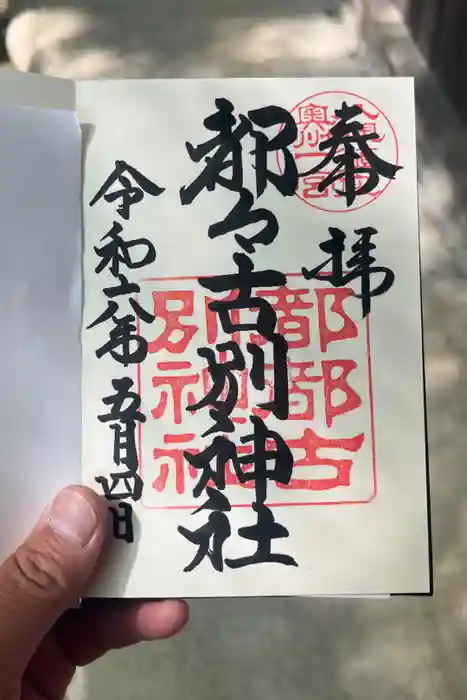 奉拝
都々古別神社
令和六年五月四日
都都古
別神社
奥州一宮